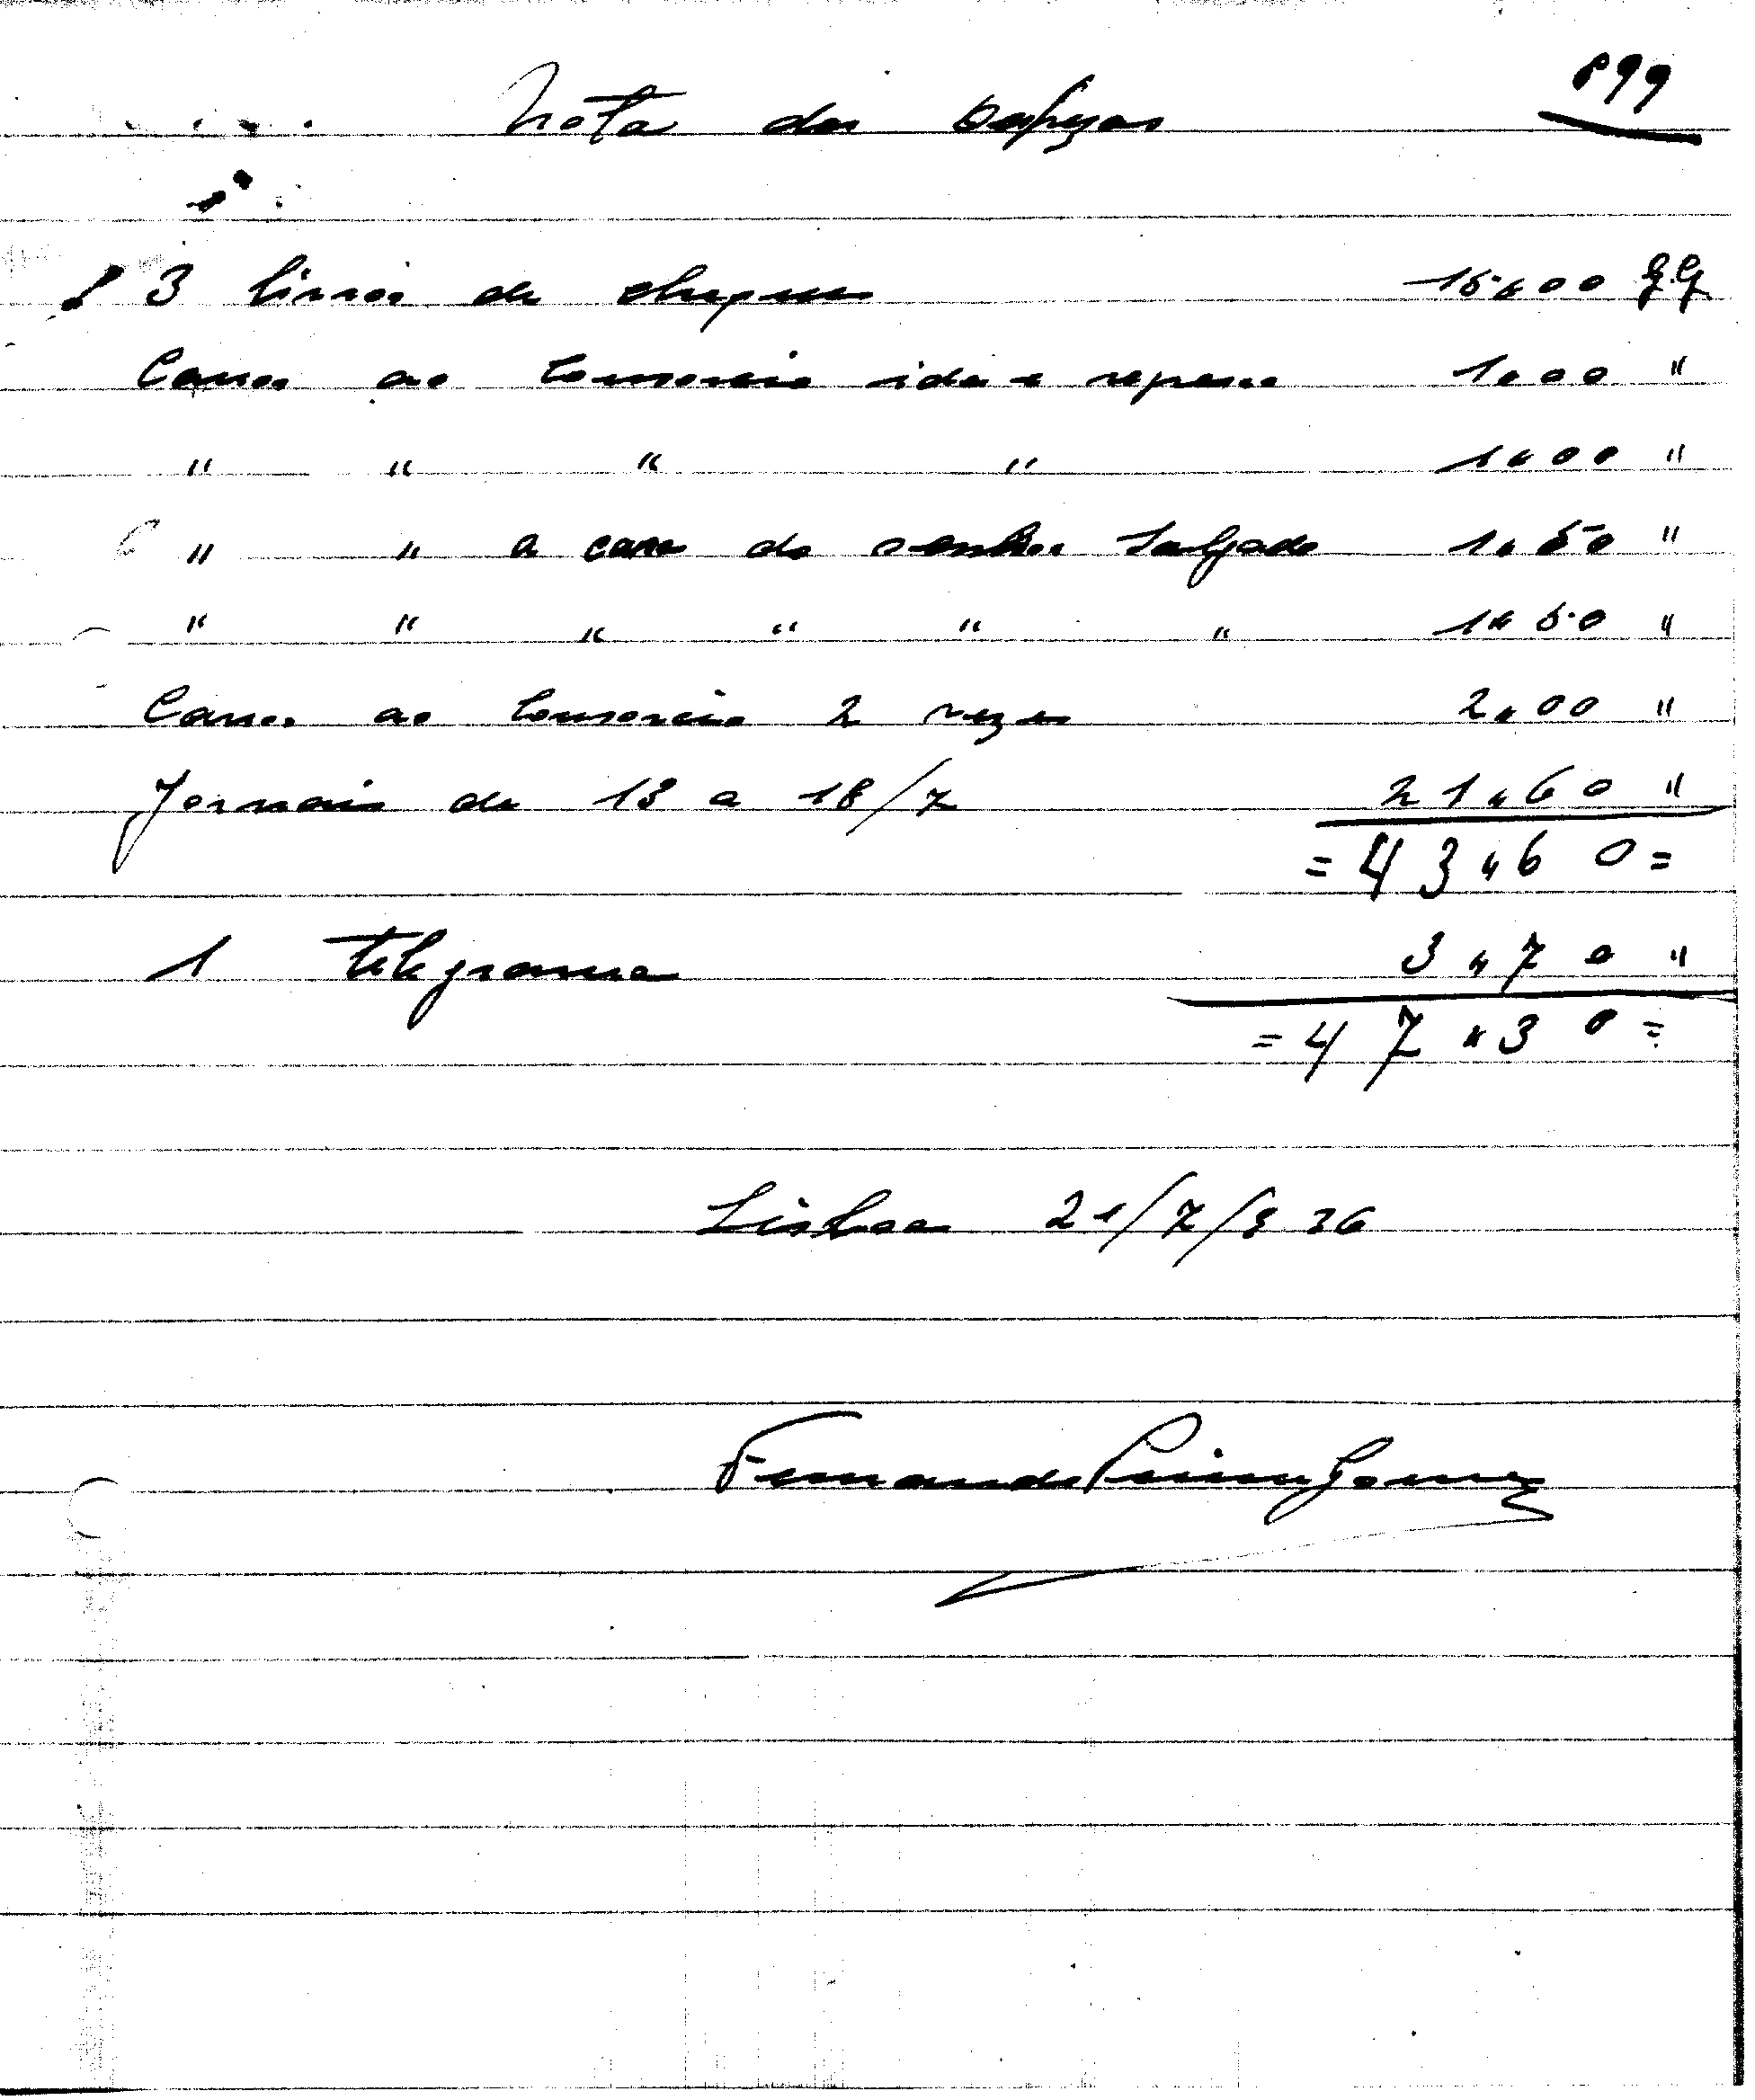 899
Nota das despezas
3 livros de cheques 15"00
Carros ao Consorcio ida e regresso 1"00 "
" " " " 1"00 "
" " a casa do senhor Salgado 1"50 "
" " " " " " 1"50 "
Carros ao Consorcio 2 vezes 2"00 "
Jornais de 13 a 18/7 21"60 "
=43"60=
1 Telegrama 3"70 "
=47"30=
Lisboa 21/7/936
Fernando Gomes